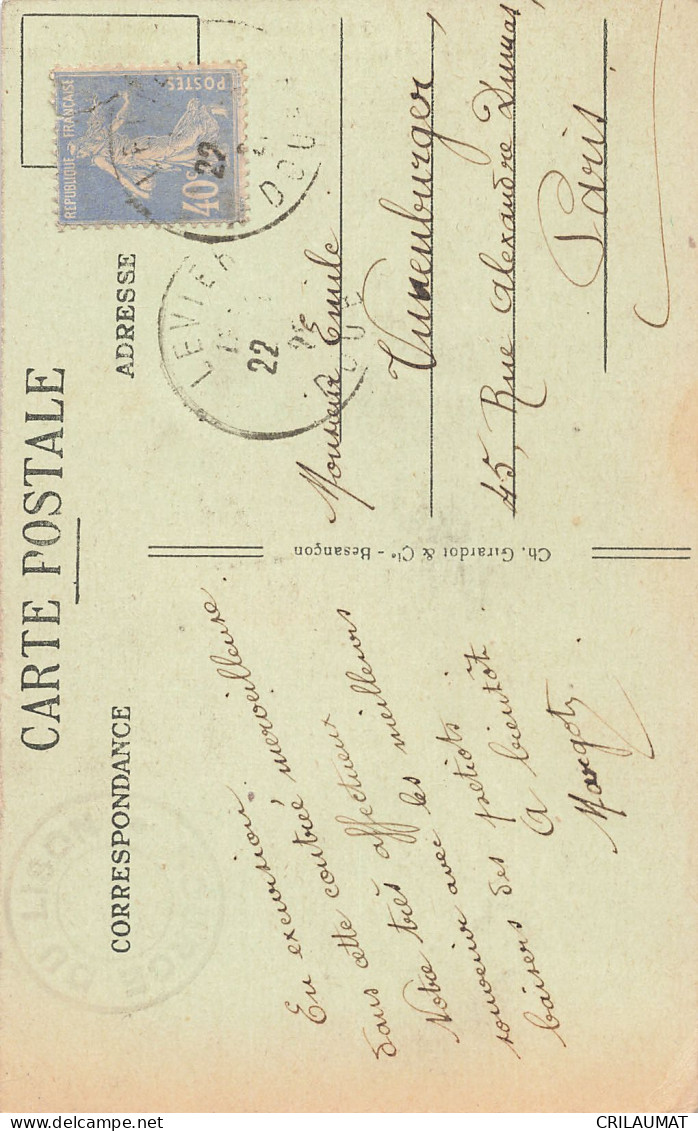 CARTE POSTALE
CORRESPONDANCE
ADRESSE
REPUBLIQUE FRANÇAISE
POSTES
40c
22
DOU
LEVIER
22
En excursion
dans cette contrée merveilleuse.
Notre très affectueux
souvenir avec les meilleurs
baisers des petiots.
A bientôt
Margot
Ch. Girardot & Cie - Besançon
Monsieur Emile
Vunenburger
45, Rue Alexandre Dumas
Paris
CRILAUMAT